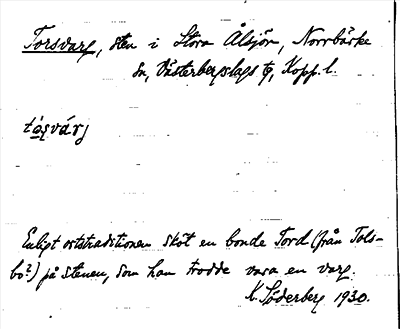 Torsvarg, sten i Stora Älsjön, Norrbärke
sn, Västerbergslags tg, Kopp. l.
tɷ́svárj
Enligt ortstraditionen sköt en bonde Tord (från Tols-
bo?) på stenen, som han trodde vara en varg.
K. Söderberg 1930.